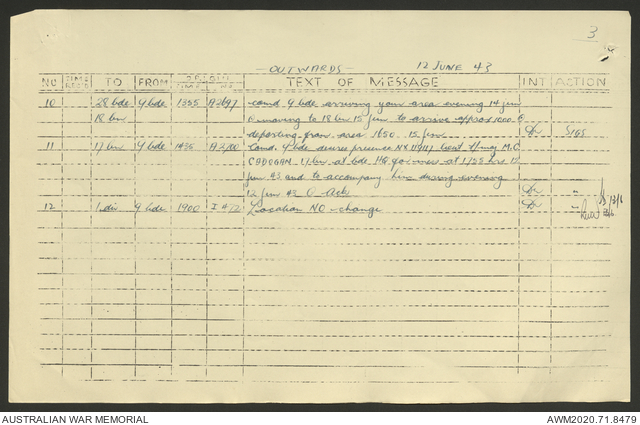 3
OUTWARDS 12 JUNE 43
NO TIME REC'D TO FROM TIME TEXT OF MESSAGE INT ACTION
10 28 bde 4 bde 1355 A2697 comd 4 bde arriving your area evening 14 jun
18 bn & moving to 18 bn 15 jun to arrive approx 1000 &
departing from area 1650 15 jun SIGS
11 17 bn 4 bde 1435 A2700 Comd 4 bde desires presence M.C
CADOGAN 17 bn at bde HQ for mess at 1755 hrs 12
jun 43 and to accompany him during evening
12 jun 43 O Ack
12 1 div 4 bde 1900 I 472 Location NO change
13/6
AUSTRALIAN WAR MEMORIAL AWM2020.71.8479